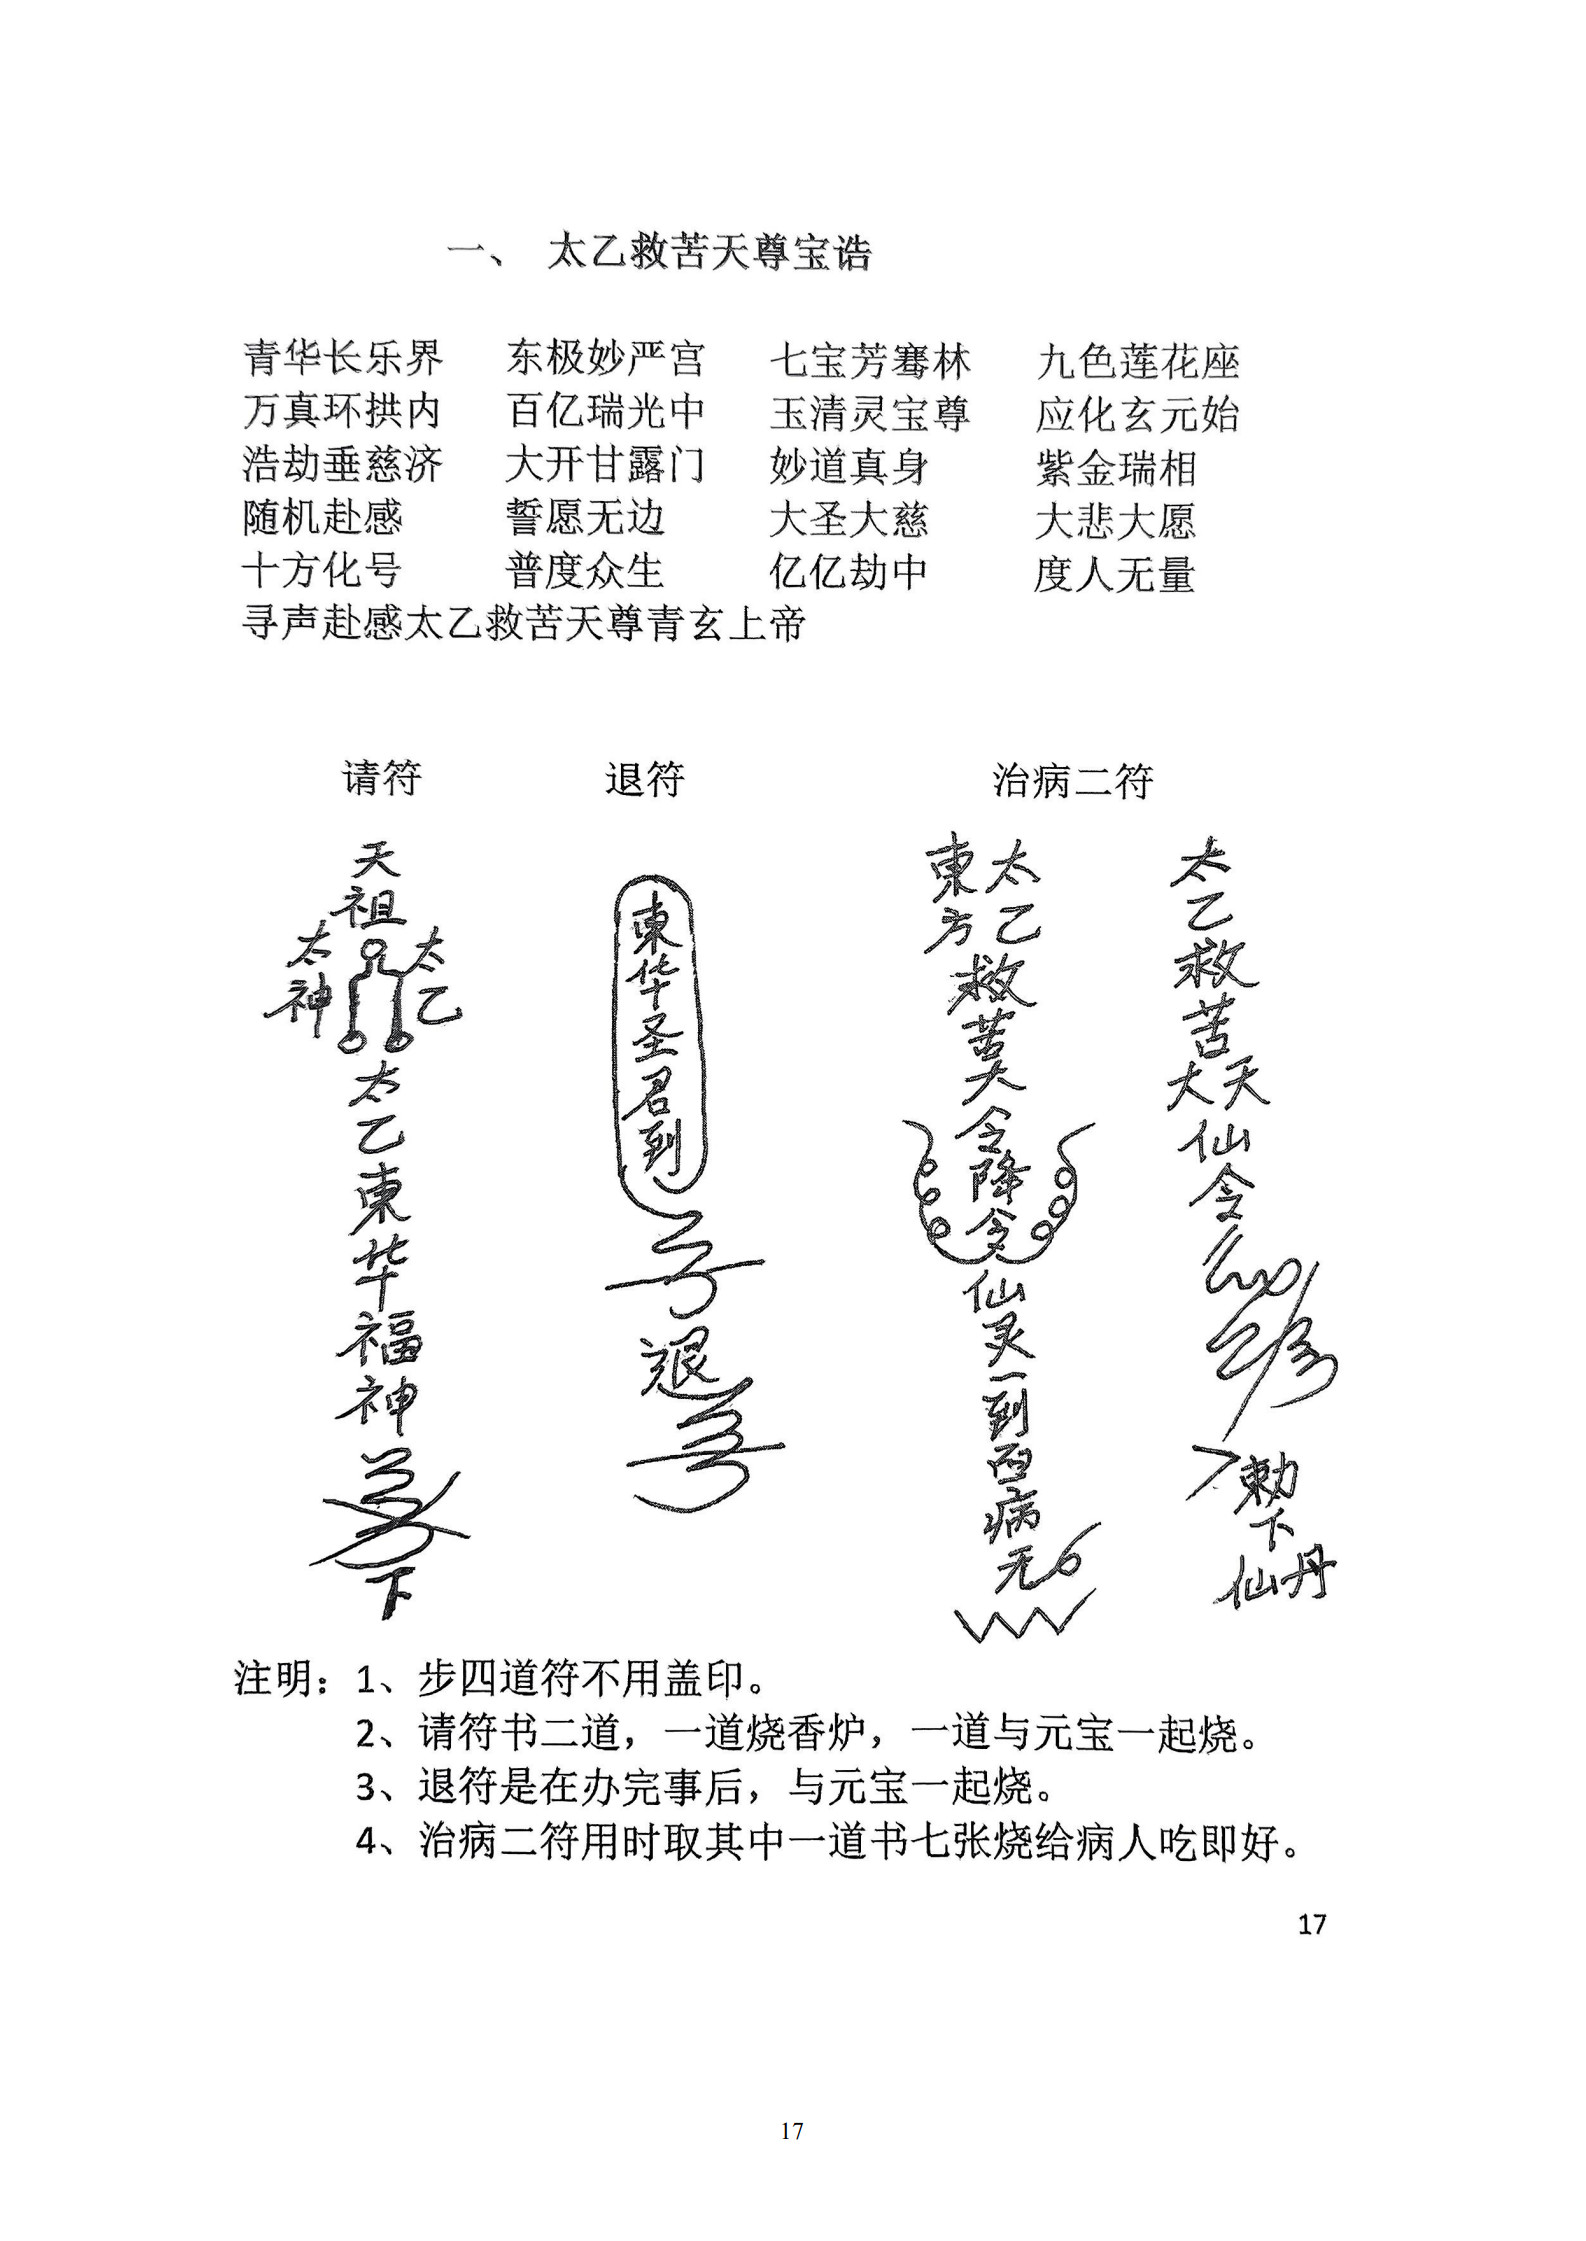 一、 太乙救苦天尊宝诰
青华长乐界 东极妙严宫 七宝芳骞林 九色莲花座
万真环拱内 百亿瑞光中 玉清灵宝尊 应化玄元始
浩劫垂慈济 大开甘露门 妙道真身 紫金瑞相
随机赴感 誓愿无边 大圣大慈 大悲大愿
十方化号 普度众生 亿亿劫中 度人无量
寻声赴感太乙救苦天尊青玄上帝
请符 退符 治病二符
天祖
太神
太乙
太乙東华福神
下
東华圣君到
退
東方
太乙
救苦天
令降
仙灵一到百病无
太乙救苦
大天
仙令
敕下
仙丹
注明：1、步四道符不用盖印。
2、请符书二道，一道烧香炉，一道与元宝一起烧。
3、退符是在办完事后，与元宝一起烧。
4、治病二符用时取其中一道书七张烧给病人吃即好。
17
17